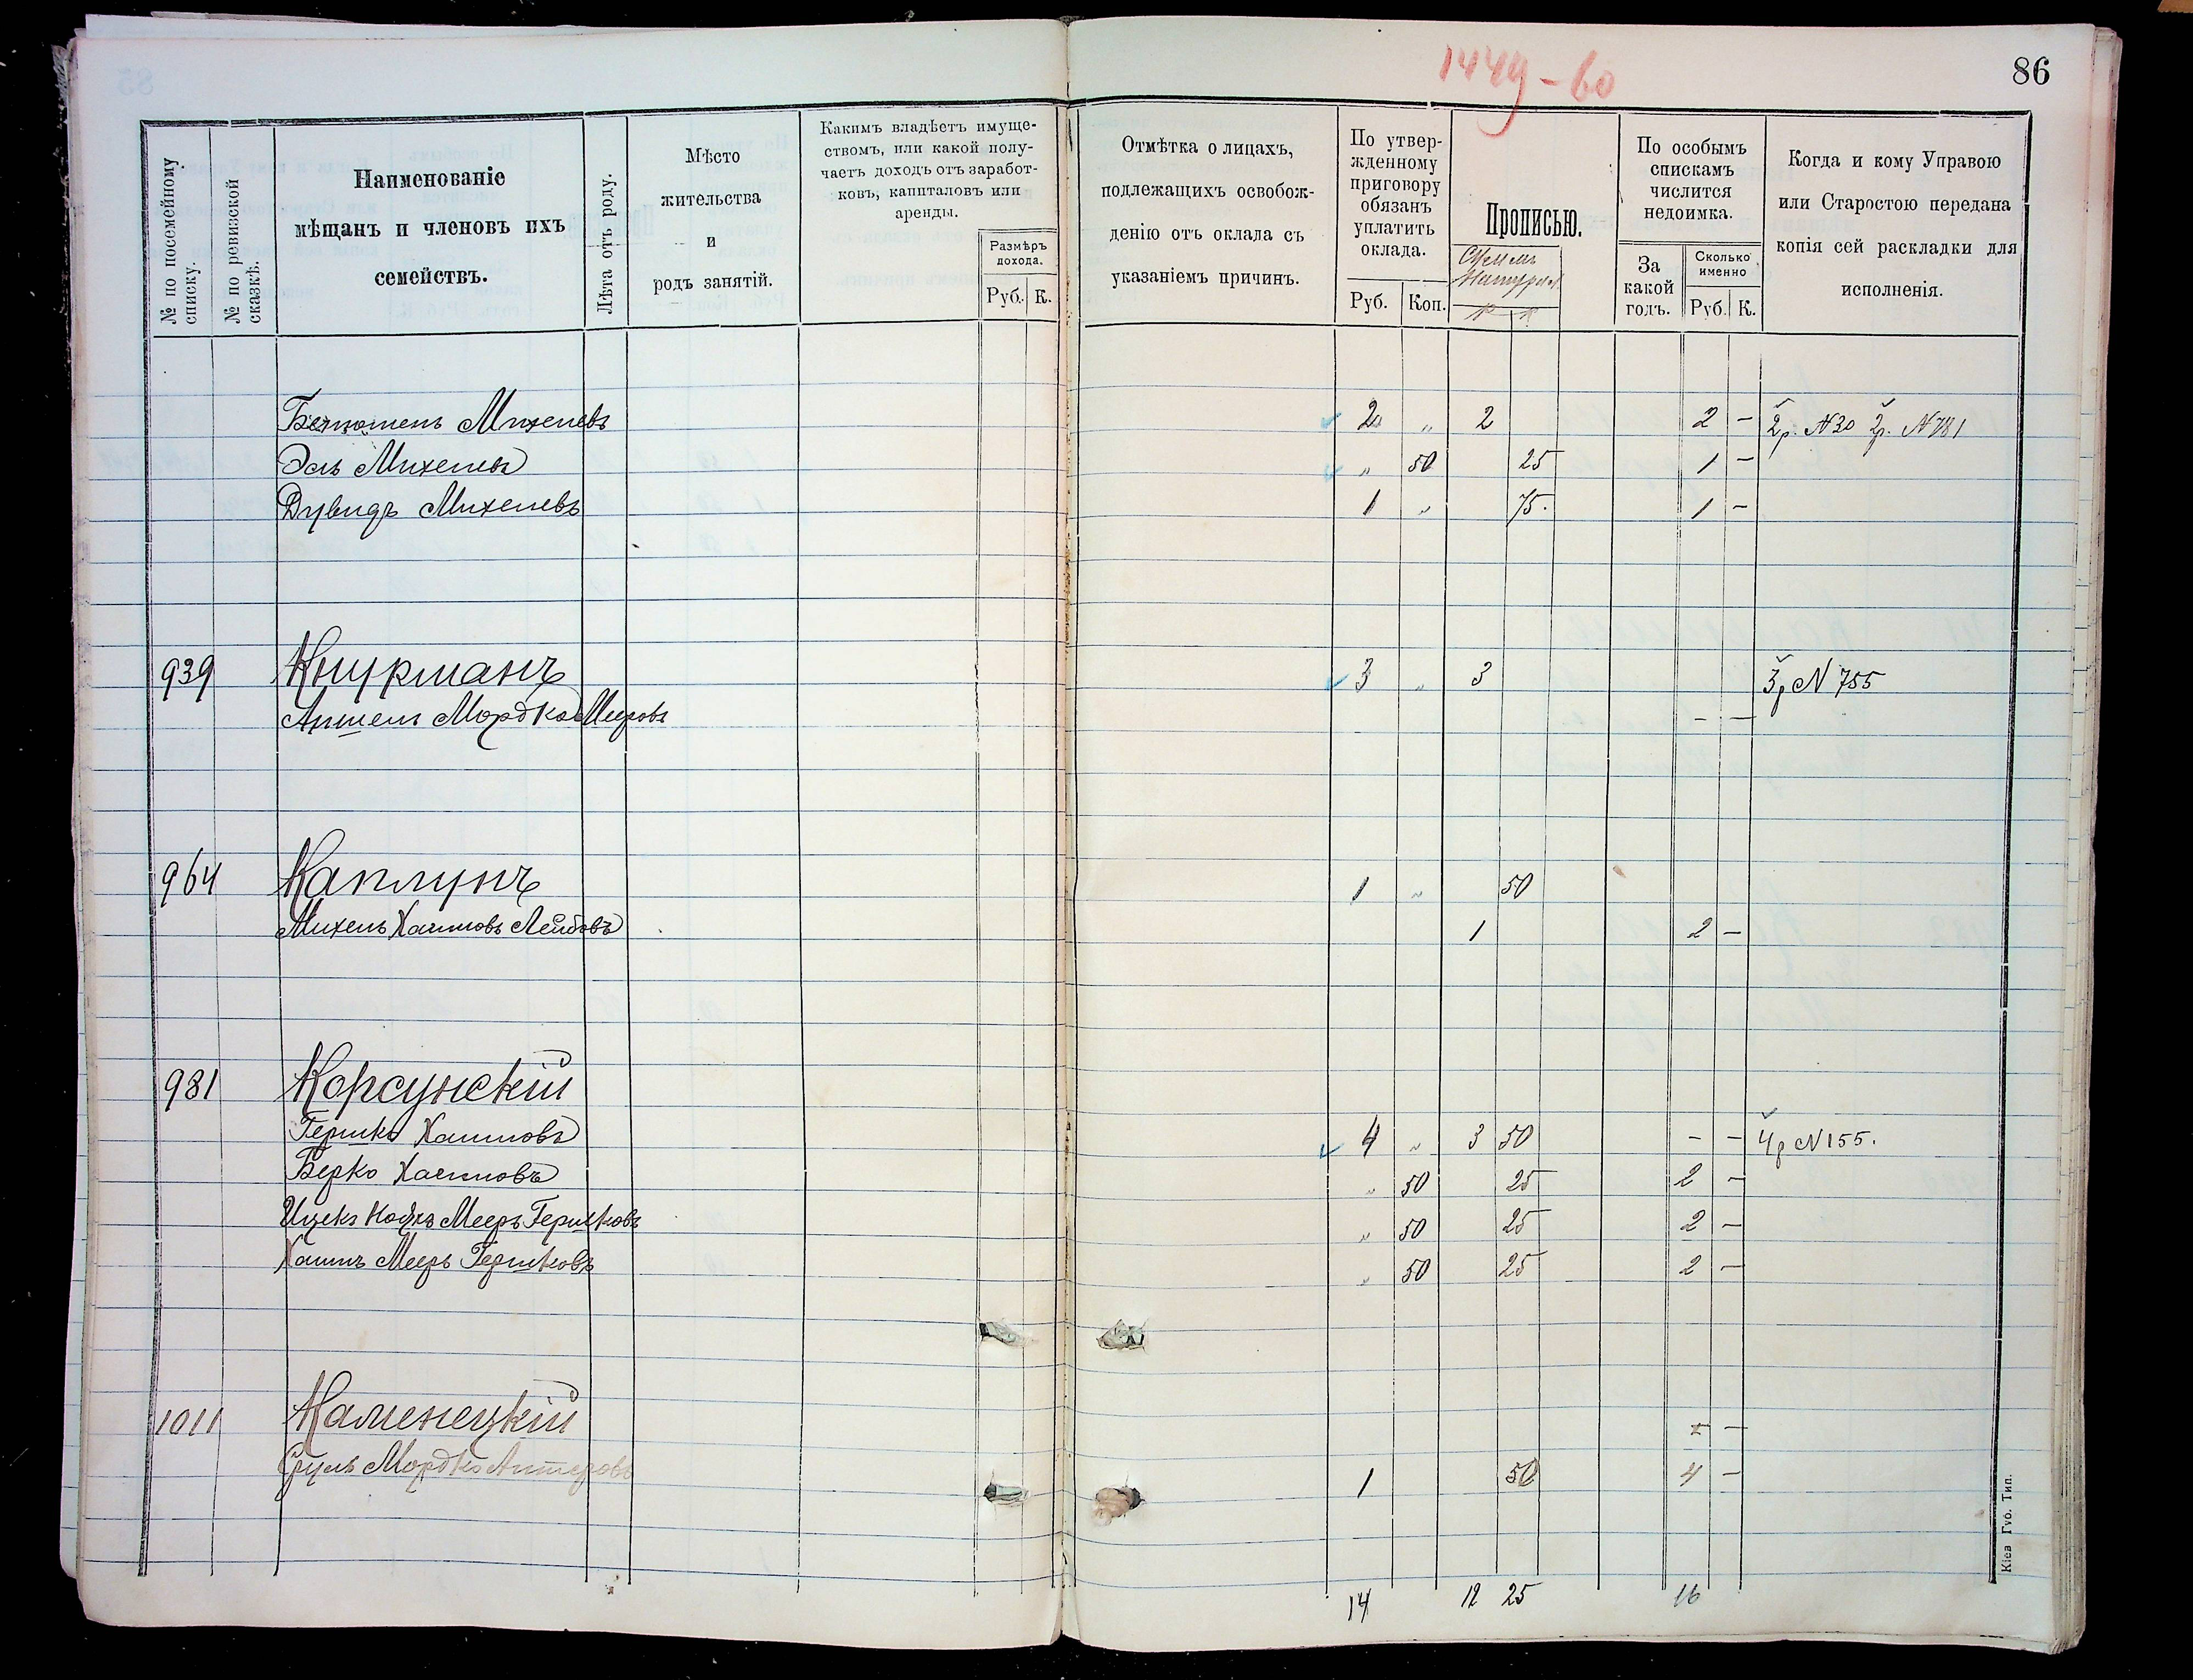 1449-60
86
№ по посемейному списку.
№ по ревизской сказкѣ.
Наименованіе
мѣщанъ и членовъ ихъ
семействъ.
Лѣта отъ роду.
Мѣсто
жительства
и
родъ занятій.
Какимъ владѣетъ имуще-
ствомъ, или какой полу-
чаетъ доходъ отъ заработ-
ковъ, капиталовъ или
аренды.
Размѣръ
дохода.
Руб. К.
Отмѣтка о лицахъ,
подлежащихъ освобож-
денію отъ оклада съ
указаніемъ причинъ.
По утвер-
жденному
приговору
обязанъ
уплатить
оклада.
Руб. Коп.
Прописью.
По особымъ
спискамъ
числится
недоимка.
За
какой
годъ.
Сколько
именно
Руб. К.
Когда и кому Управою
или Старостою передана
копія сей раскладки для
исполненія.
Михелевъ 2 „ 2 2 - 2р. №30 2р. №781
Эль Михелевъ „ 50 25 1 -
Дувидъ Михелевъ 1 „ 75. 1 -
939 Кнурманъ 3 „ 3 3р №755
Аншель Мордковъ Мееровъ - -
964 Каплунъ 1 „ 50
Михель Хаимовъ Лейбовъ 1 2 -
981 Корсунскій
Гершко Хаимовъ 4 „ 3 50 - - 4р №155.
Берко Хаимовъ „ 50 25 2 -
Ицекъ Мееръ Гершковъ „ 50 25 2 -
Хаимъ Мееръ Гершковъ „ 50 25 2 -
1011 Каменецкій -
Сруль Мордко 1 50 4 -
14 12 25 16
Кіев. Губ. Тип.